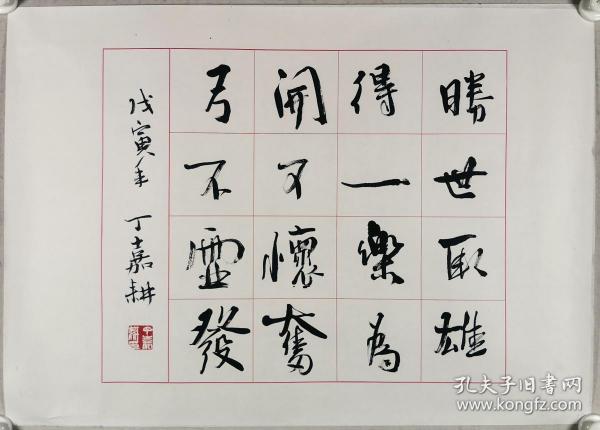 勝世取雄
得一樂為
開可懷奮
弓不虛發
戊寅年 丁嘉耕
孔夫子旧书网
www.kongfz.com